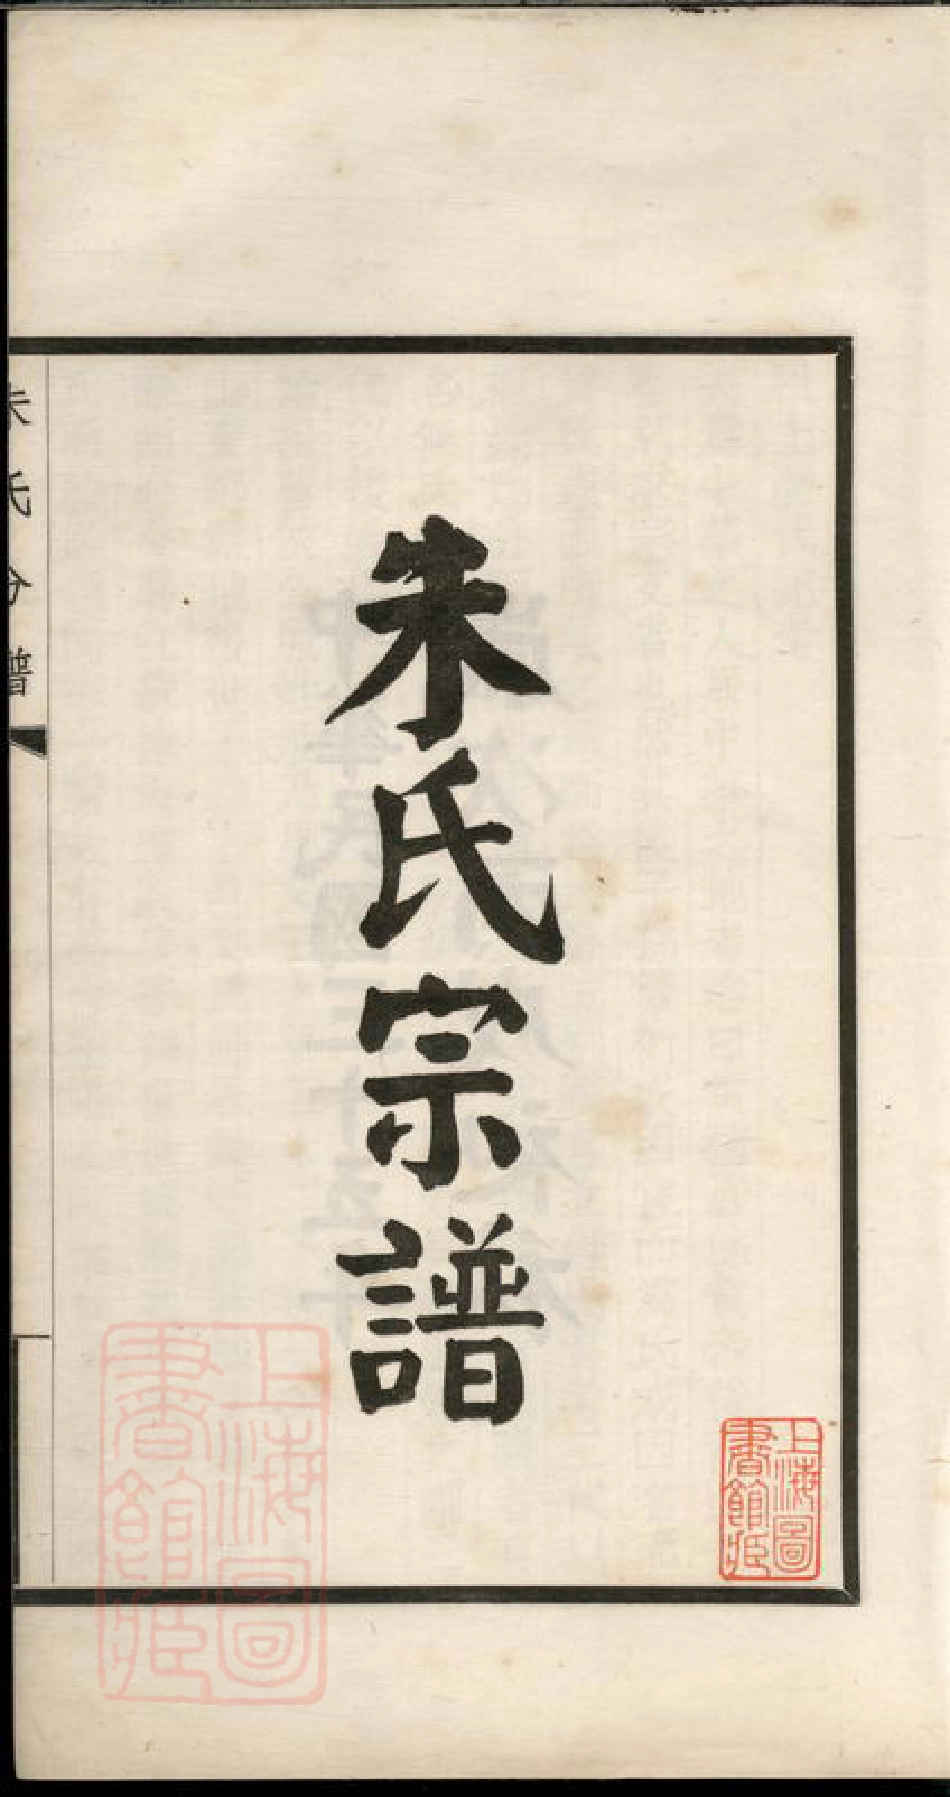 朱氏宗譜
上海圖
書館臧
朱氏分譜
上海圖
書館臧